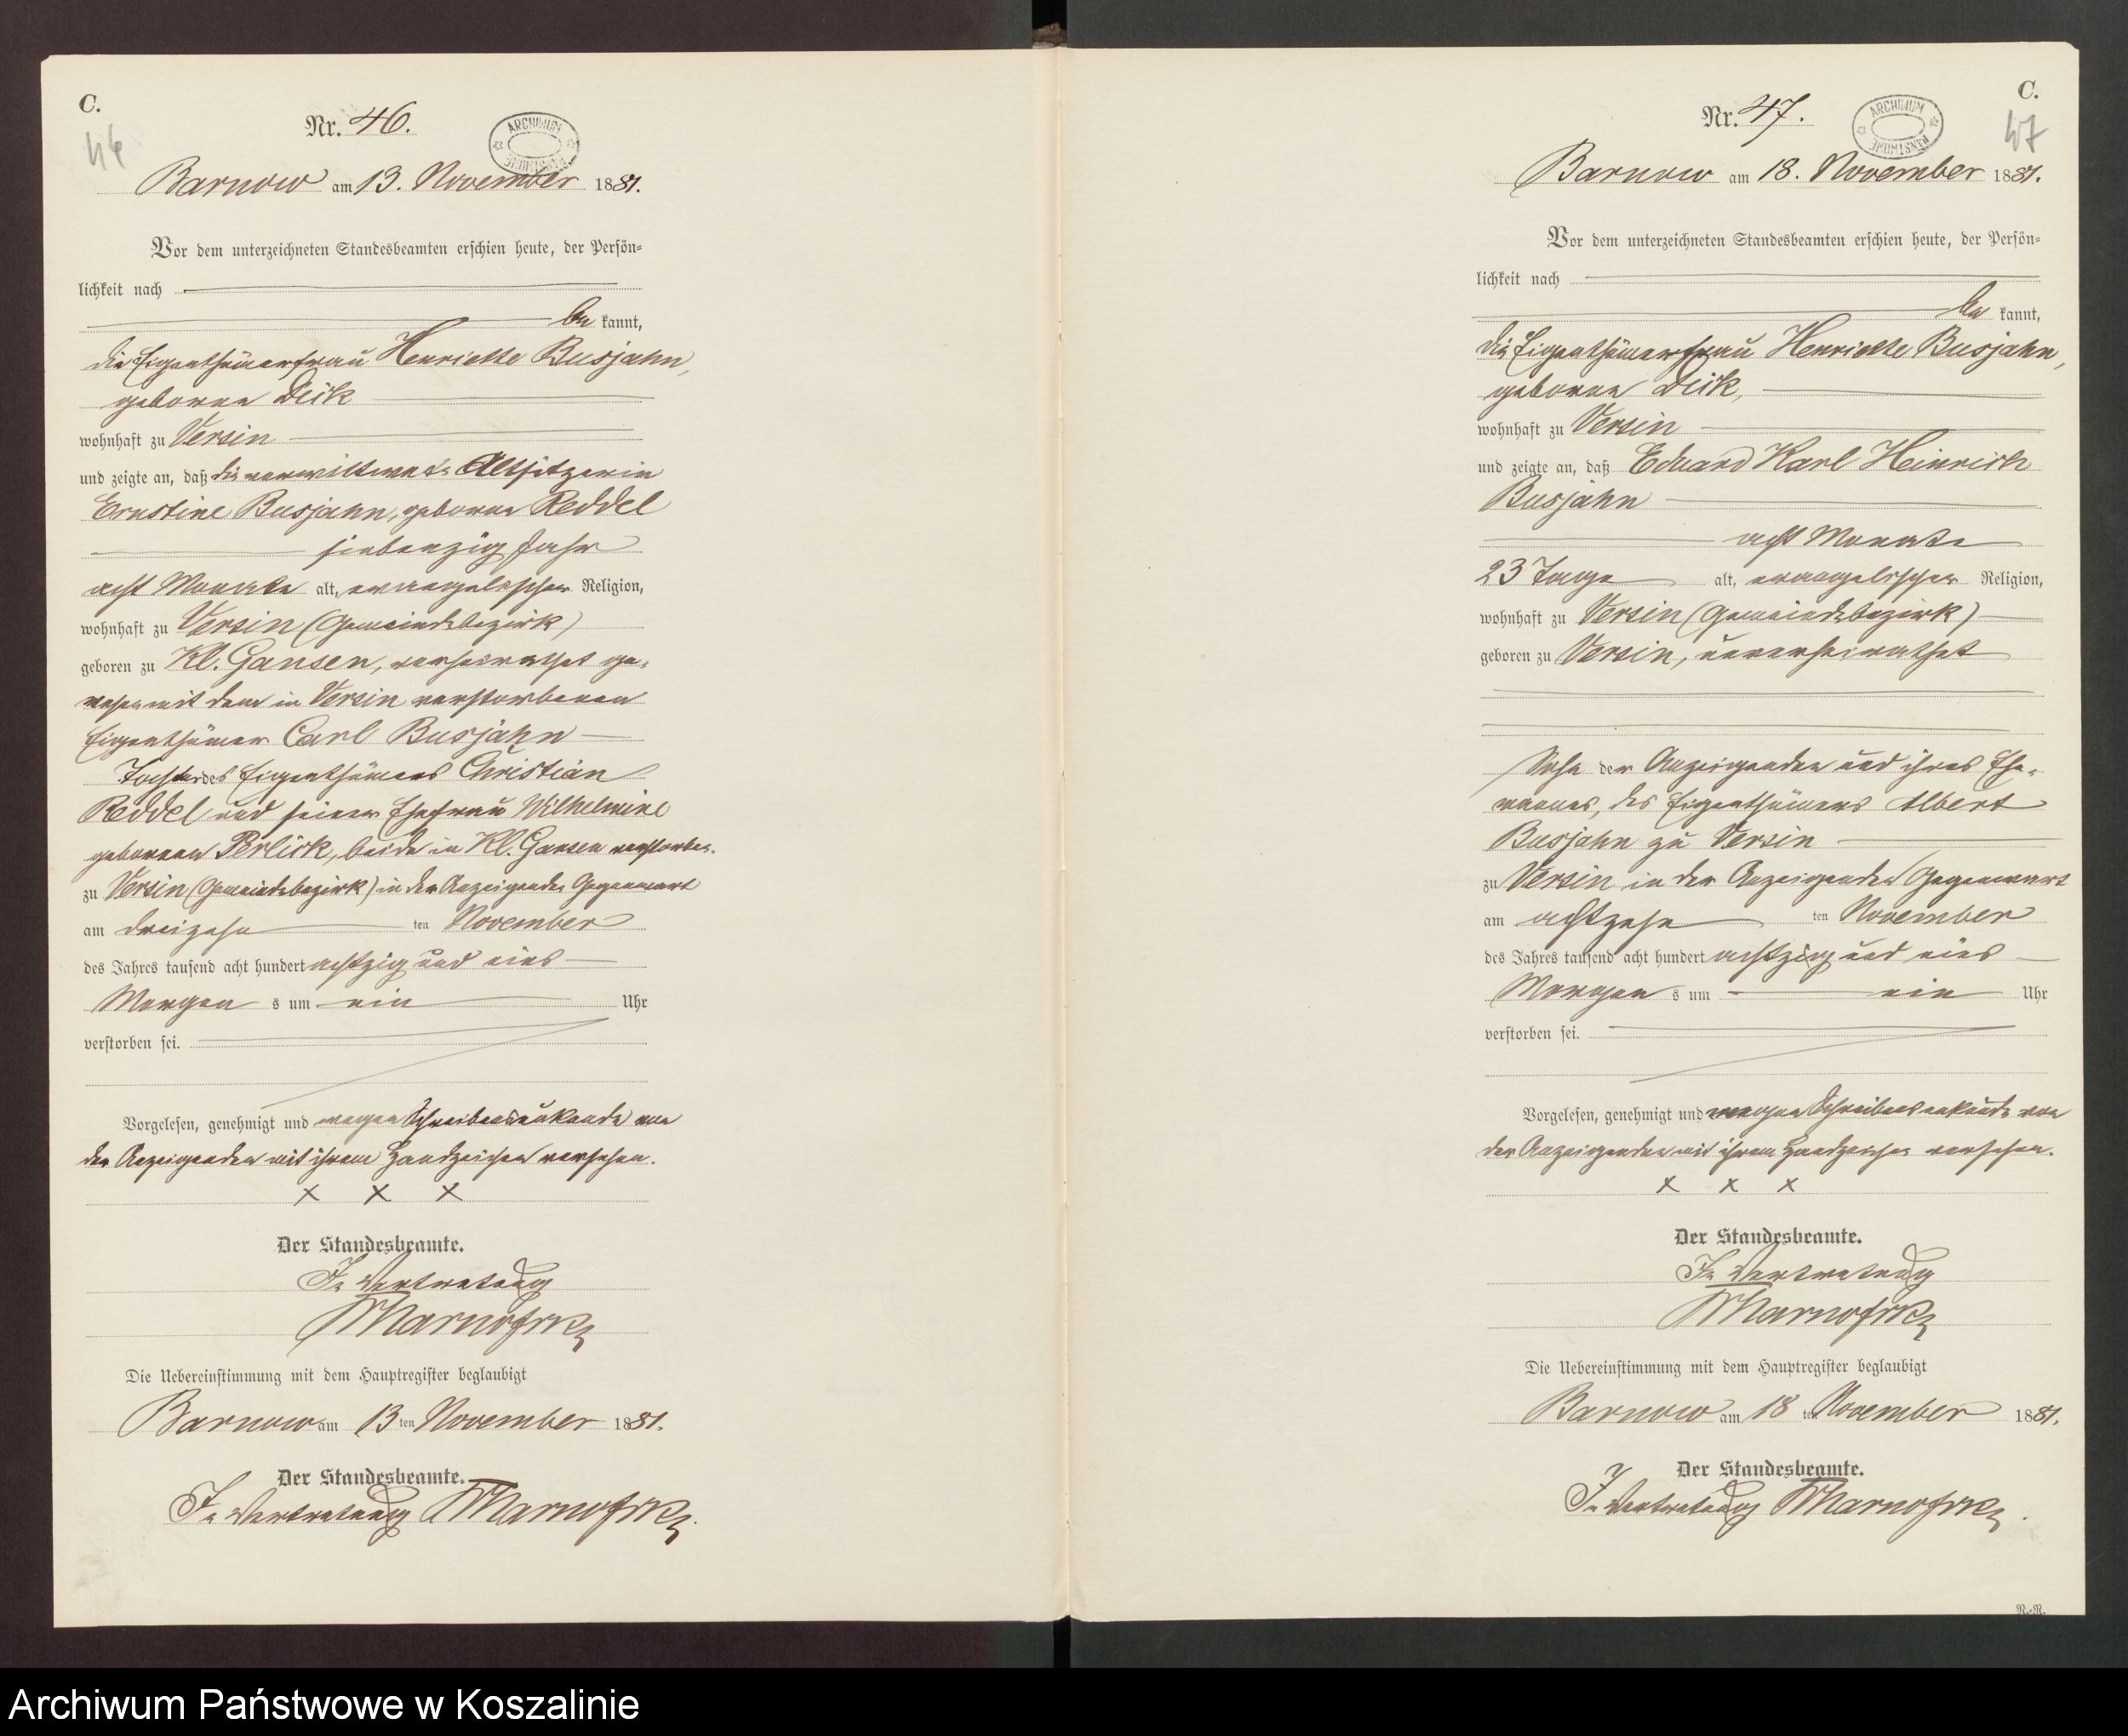 C.
46
Nr. 46.
ARCHIWUM PAŃSTWOWE
Barnow am 13. November 1881.
Vor dem unterzeichneten Standesbeamten erschien heute, der Persön-
lichkeit nach
be kannt,
die Eigenthümerfrau Henriette Busjahn,
geborne Deik
wohnhaft zu Versin
und zeigte an, daß die verwittwete Altsitzerin
Ernstine Busjahn, geborne Reddel
siebenzig Jahr
acht Monate alt, evangelischer Religion,
wohnhaft zu Versin (Gemeindebezirk)
geboren zu Kl. Gansen, verheirathet ge-
wesen mit dem in Versin verstorbenen
Eigenthümer Carl Busjahn
Tochter des Eigenthümers Christian
Reddel und seiner Ehefrau Wilhelmine
gebornen Perlick, beide in Kl. Gansen verstorben.
zu Versin (Gemeindebezirk) in der Anzeigenden Gegenwart
am dreizehn ten November
des Jahres tausend acht hundert achtzig und eins
Morgen s um ein Uhr
verstorben sei.
Vorgelesen, genehmigt und wegen Schreibensunkunde von
der Anzeigenden mit ihrem Handzeichen versehen.
x x x
Der Standesbeamte.
In Vertretung
Die Uebereinstimmung mit dem Hauptregister beglaubigt
Barnow am 13 ten November 1881.
Der Standesbeamte.
In Vertretung
C.
47
Nr. 47.
ARCHIWUM PAŃSTWOWE
Barnow am 18. November 1881.
Vor dem unterzeichneten Standesbeamten erschien heute, der Persön-
lichkeit nach
be kannt,
die Eigenthümerfrau Henriette Busjahn,
geborne Deik,
wohnhaft zu Versin
und zeigte an, daß Eduard Karl Heinrich
Busjahn
acht Monate
23 Tage alt, evangelischer Religion,
wohnhaft zu Versin (Gemeindebezirk)
geboren zu Versin, unverheirathet
Sohn der Anzeigenden und ihres Ehe-
mannes, des Eigenthümers Albert
Busjahn zu Versin
zu Versin in der Anzeigenden Gegenwart
am achtzehn ten November
des Jahres tausend acht hundert achtzig und eins
Morgen s um ein Uhr
verstorben sei.
Vorgelesen, genehmigt und wegen Schreibensunkunde von
der Anzeigenden mit ihrem Handzeichen versehen.
x x x
Der Standesbeamte.
In Vertretung
Die Uebereinstimmung mit dem Hauptregister beglaubigt
Barnow am 18 ten November 1881.
Der Standesbeamte.
In Vertretung
Archiwum Państwowe w Koszalinie